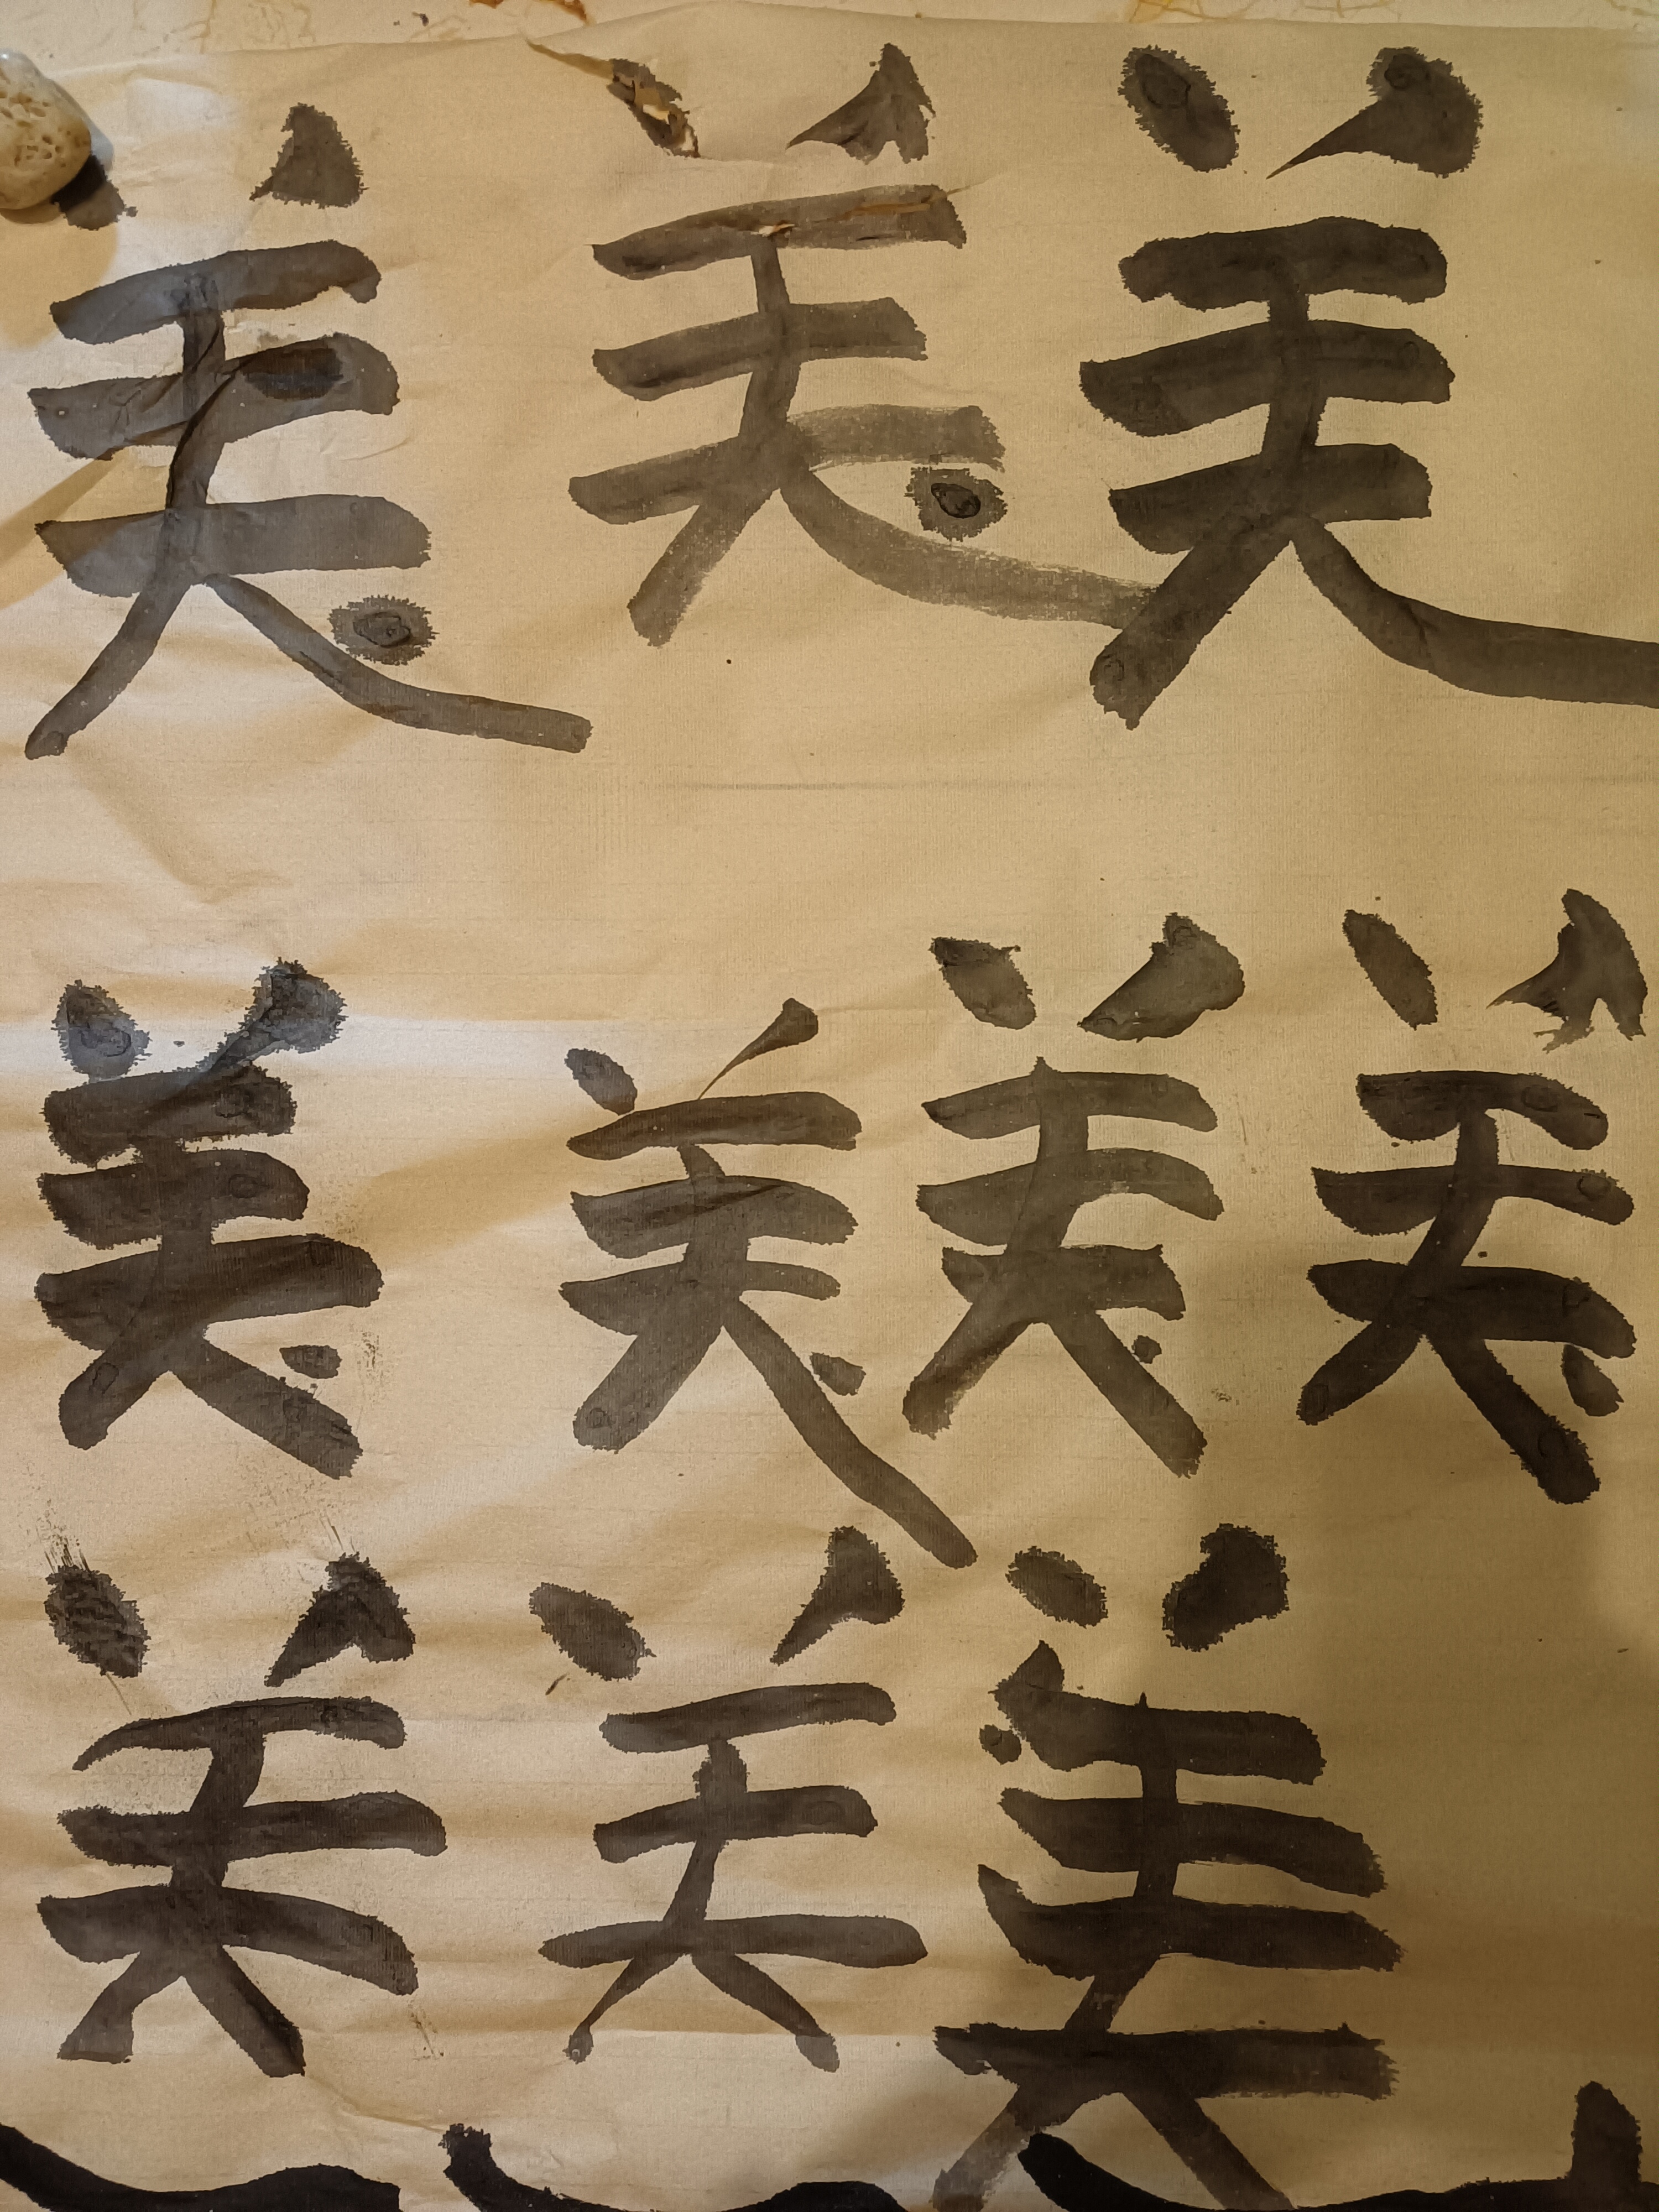 美美美
美美美美
美美美